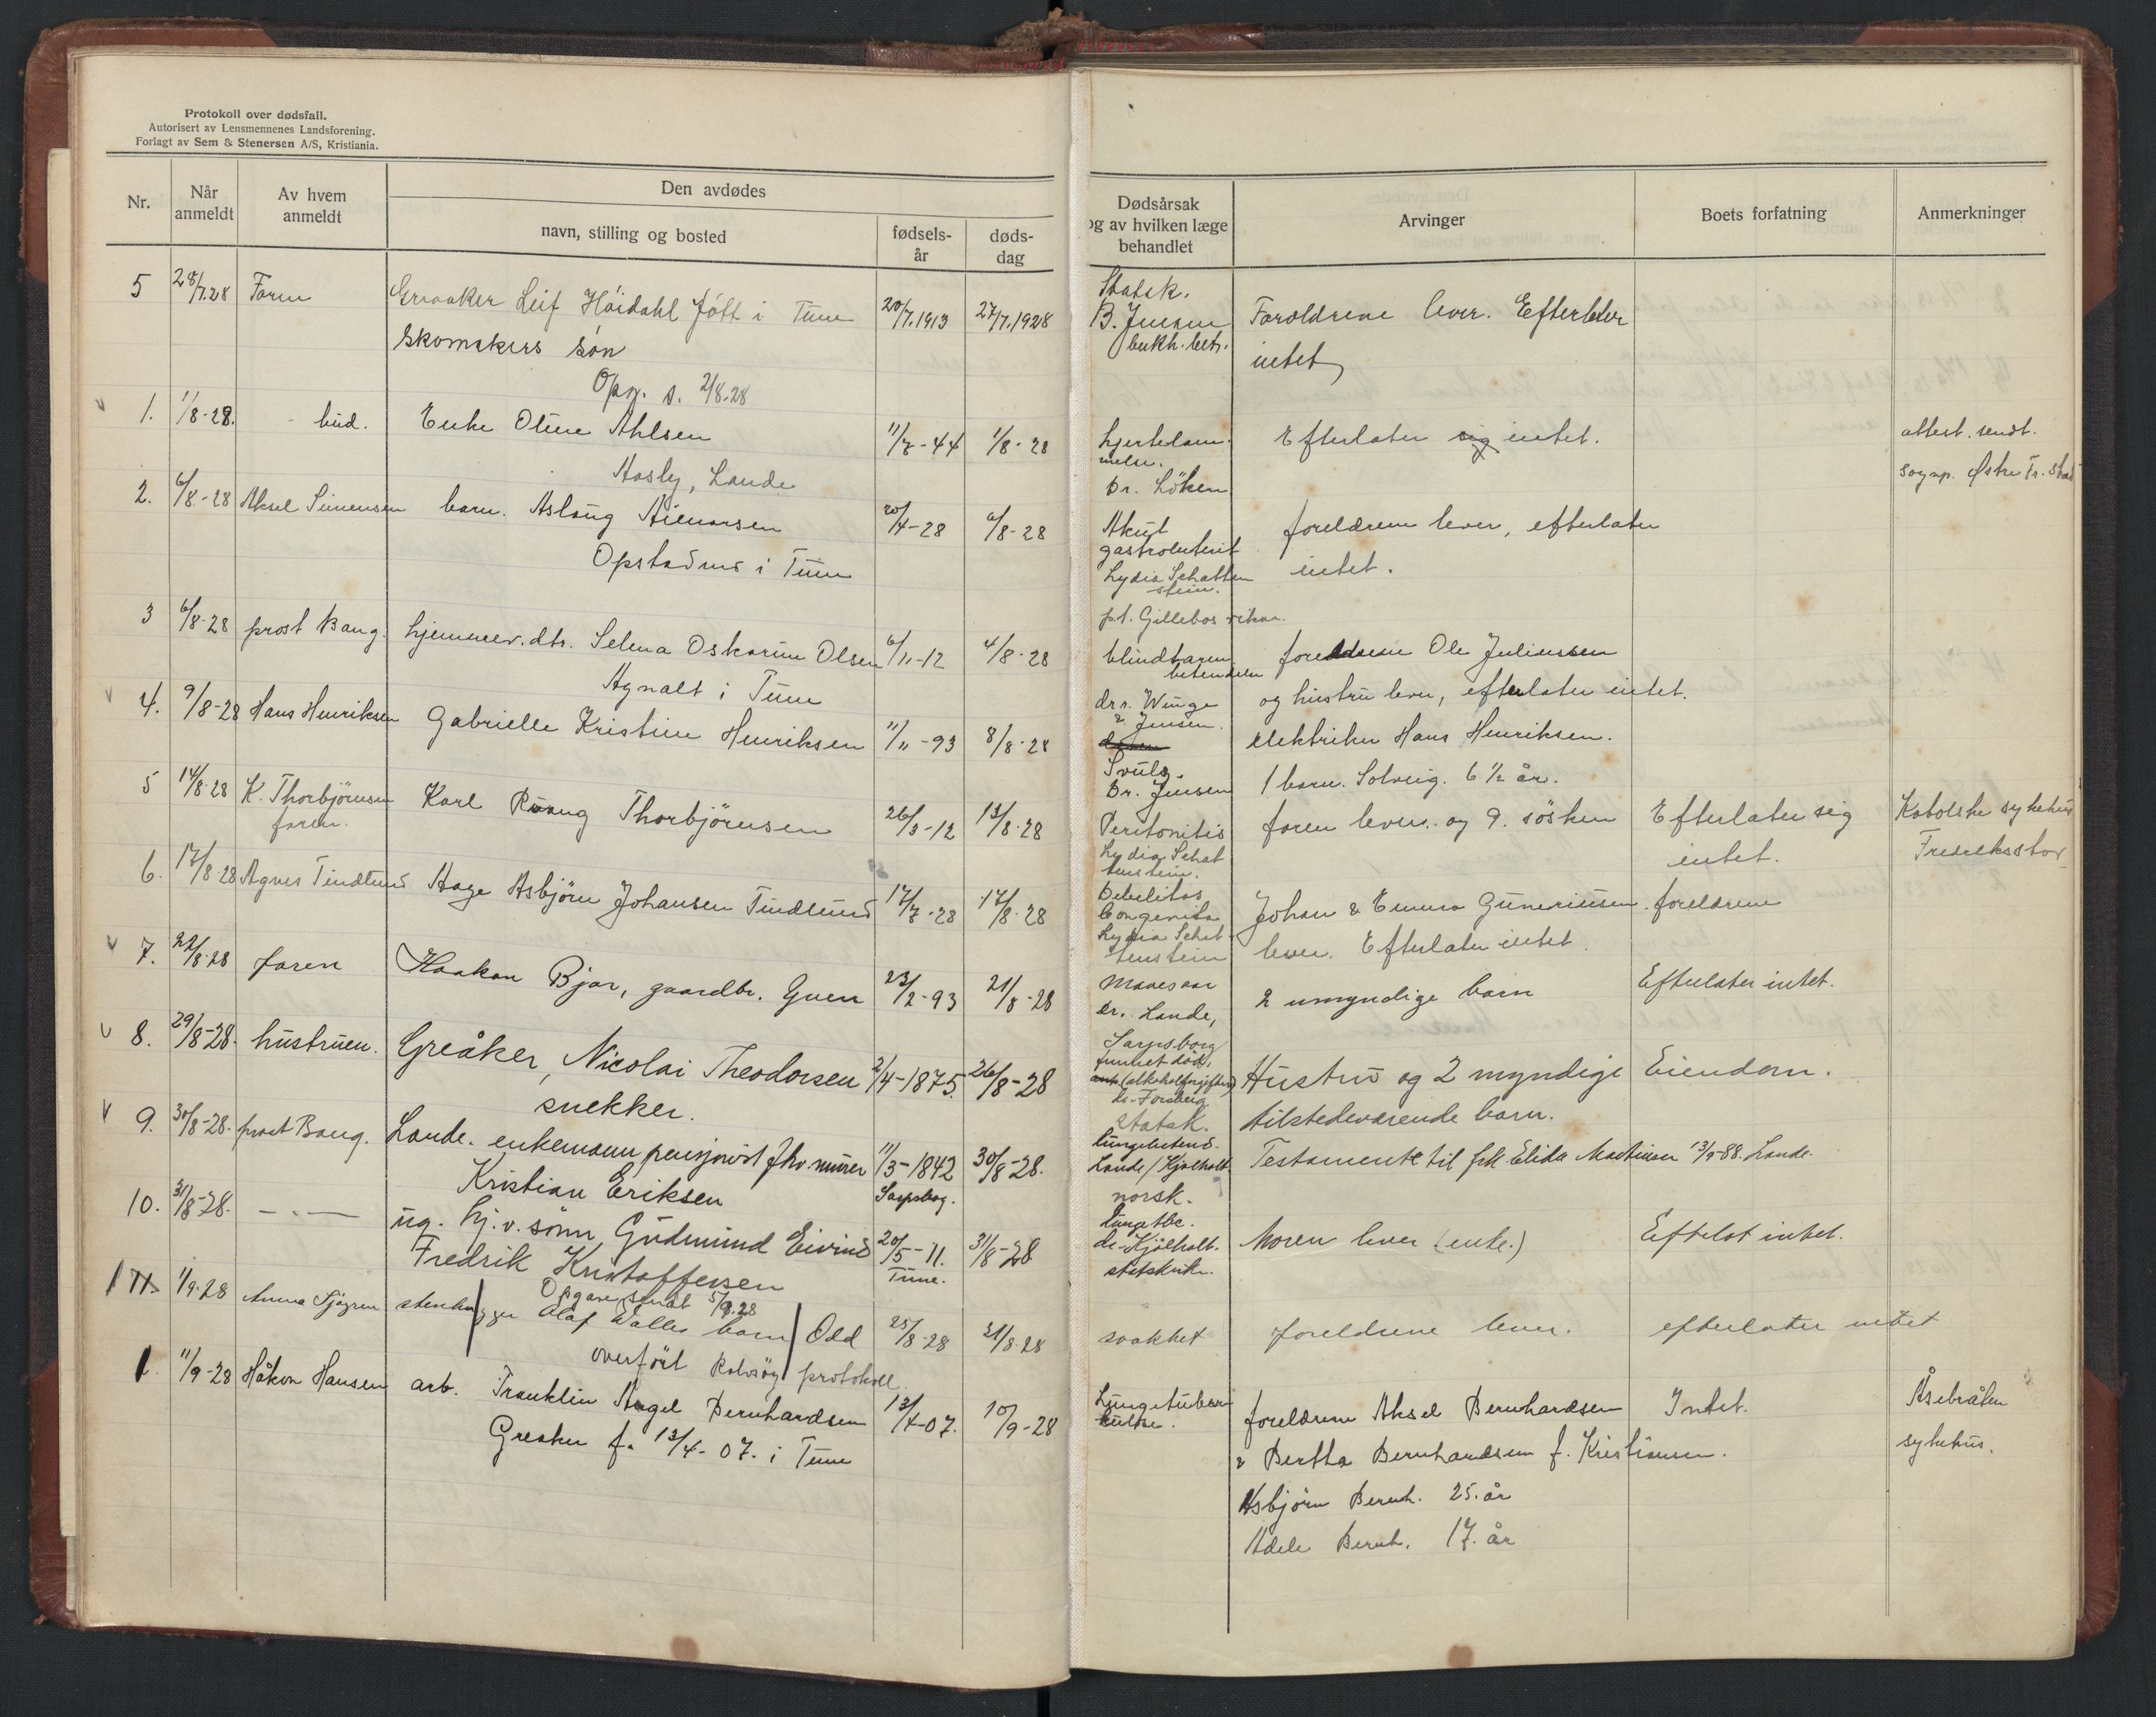 Protokoll over dødsfall.
Autorisert av Lensmennenes Landsforening.
Forlagt av Sem & Stenersen A/S, Kristiania.
Nr.
Når anmeldt
Av hvem anmeldt
Den avdødes
navn, stilling og bosted
fødsels-år
døds-dag
Dødsårsak
og av hvilken læge
behandlet
Arvinger
Boets forfatning
Anmerkninger
5 28/7.28 Faren Greaaker Leif Höidahl fött i Tune 20/7.1913 27/7.1928
Skomakers sön
Opg. s. 2/8-28
Statsk.
B. Jensen
bukh. bet.
Foreldrene lever. Efterlater
intet
1. 1/8-28. bud. Enke Oline Ahlsen 11/7-44 1/8-28
Aasly, Lande
hjertelam-
melse.
Dr. Löken
Efterlater sig intet.
attest. sendt.
sognp. Østre Fr. stad
2. 6/8-28 Aksel Simensen barn. Aslaug Aienarsen 20/4-28 6/8-28
Opstadmo i Tune
Akut
gastroenterit
Lydia Schatten
stein.
foreldrene lever, efterlater
intet.
3 6/8-28 prost Bang. hjemmev. dtr. Selma Oskarine Olsen 6/11-12 4/8-28
Agnalt i Tune
p.t. Gillebos vikar.
blindtarm
betendelse
drr. Winge
& Jensen.
foreldrene Ole Julinssen
og hustru lever, efterlater intet.
4. 9/8-28 Hans Henriksen Gabrielle Kristine Henriksen 11/11-93 8/8-28
Svulst.
Dr. Jensen
elektriker Hans Henriksen.
1 barn. Solveig. 6 1/2 år.
5 14/8-28 K. Thorbjörnsen Karl Roang Thorbjörnsen 26/3-12 13/8-28
faren.
Peritonitis
Lydia Schat
tenstein.
faren lever. og 9. søsken
Efterlater sig
intet.
Katolske sykehus
Fredrikstad
6. 17/8-28 Agnes Tindlund Aage Asbjörn Johansen Tindlund 17/7-28 17/8-28
Debilitas
Congenita
Lydia Schat
tenstein
Johan & Emma Guneriussen. foreldrene
lever. Efterlater intet.
7. 22/8-28 faren Haakon Bjar, gaardbr. Guen 23/2-93 21/8-28
Mavesaar
Dr. Lande,
Sarpsborg
2 umyndige barn
Efterlater intet.
8. 29/8-28. hustruen. Greåker, Nicolai Theodorsen 2/4-1875. 26/8-28
snekker.
funnet död.
(alkoholforgiftn.)
dr. Forsberg
statsk.
Hustru og 2 myndige
tilstedeværende barn.
Eiendom.
9. 30/8-28. prost Bang. Lande. enkemann pensjonist fhv. murer 11/3-1842 30/8-28.
Kristian Eriksen Sarpsbog.
lungebetend.
Lande/Kjølholt
norsk.
Testamente til frk. Elida Martinsen 13/9-88. Lande.
10. 31/8-28. — " — ug. hj. v. sönn Gudmund Eivind 20/5-11. 31/8-28
Fredrik Kristoffersen Tune.
lungetbc.
dr. Kjölholt.
statskirk.
Moren lever (enke.)
Efterlot intet.
Opgave sendt 5/9.28
11 1/9-28 Anna Sjögren stenhugger Olaf Walles barn Odd 25/8-28 31/8-28
overført Rolvsöy protokoll
svakhet
foreldrene lever.
efterlater intet
1. 11/9-28 Håkon Hansen arb. Franklin Angel Bernhardsen 13/4-07. 10/9-28
Greaker f. 13/4-07. i Tune
Lungetuber
kulose.
foreldrene Aksel Bernhardsen
& Bertha Bernhardsen f. Kristiansen.
Asbjörn Bernh. 25. år
Adele Bernh. 17. år
Intet.
Åsebråten
sykehus.